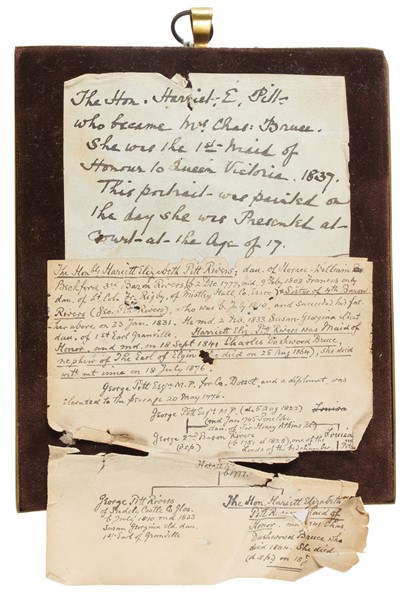 The Hon. Harriet. E. Pitt
who became Mrs Chas: Bruce.
She was the 1st Maid of
Honour to Queen Victoria. 1837.
This portrait was painted on
the day she was Presented at
court at the Age of 17.
The Honble Harriett Elizabeth Pitt Rivers, dau. of Horace William
Beckford 3rd Baron Rivers b. 2 Dec. 1777, md. 9 Feb. 1808 Frances only
dau. of Lt. Col. Rigby, of Mistley Hall Co. Sister of 4th Baron
Rivers (Geo. Pitt Rivers), who was b. July 1810, and succeeded his fat
her above, on 23 Jan. 1831. He md. 2 Feb. 1833 Susan Georgina eldest
dau. of 1st Earl Granville. Harriett Eliz. Pitt Rivers was Maid of
Honor, and md. on 18 Sept 1841 Charles Dashwood Bruce,
nephew of The Earl of Elgin (he died on 25 Aug 1864), She died
witht issue on 18 July 1876.
George Pitt Esqre M.P. for Co. Dorset, and a diplomat, was
elevated to the peerage 20 May 1776.
George Pitt Esqre M.P.
md. Jan 1745 Penelope
dau. of Sir Henry Atkins Bt
George 2nd Baron Rivers
(d.s.p.) Lords of the bedchamber
Horace
George Pitt Rivers
of Sudeley Castle Co Glos.
b. July 1810 md 1833
Susan Georgina eld. dau.
1st Earl of Granville
The Hon. Harriett Elizabeth
Pitt R Maid of
Honor. md 1841 Chas.
Dashwood Bruce who
died 1864. She died
(d.s.p.) on 18th